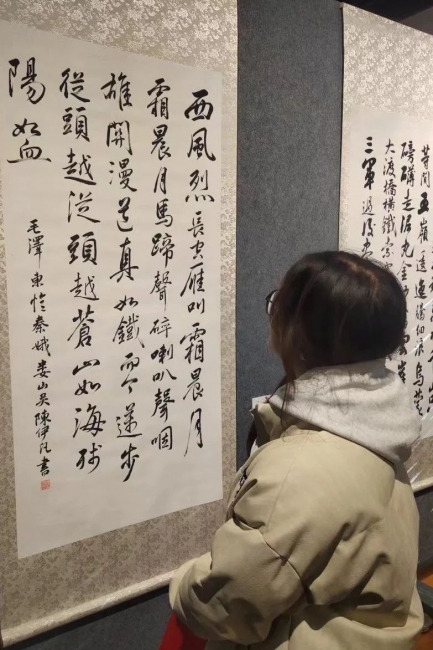 西風烈長空雁叫霜晨月
霜晨月馬蹄聲碎喇叭聲咽
雄關漫道真如鐵而今邁步
從頭越從頭越蒼山如海殘
陽如血
毛澤東憶秦娥娄山关陳伊凡書
等閒五嶺逶迤騰細浪烏蒙
磅礴走泥丸金沙雲崖
大渡橋橫鐵索寒
三軍過後盡